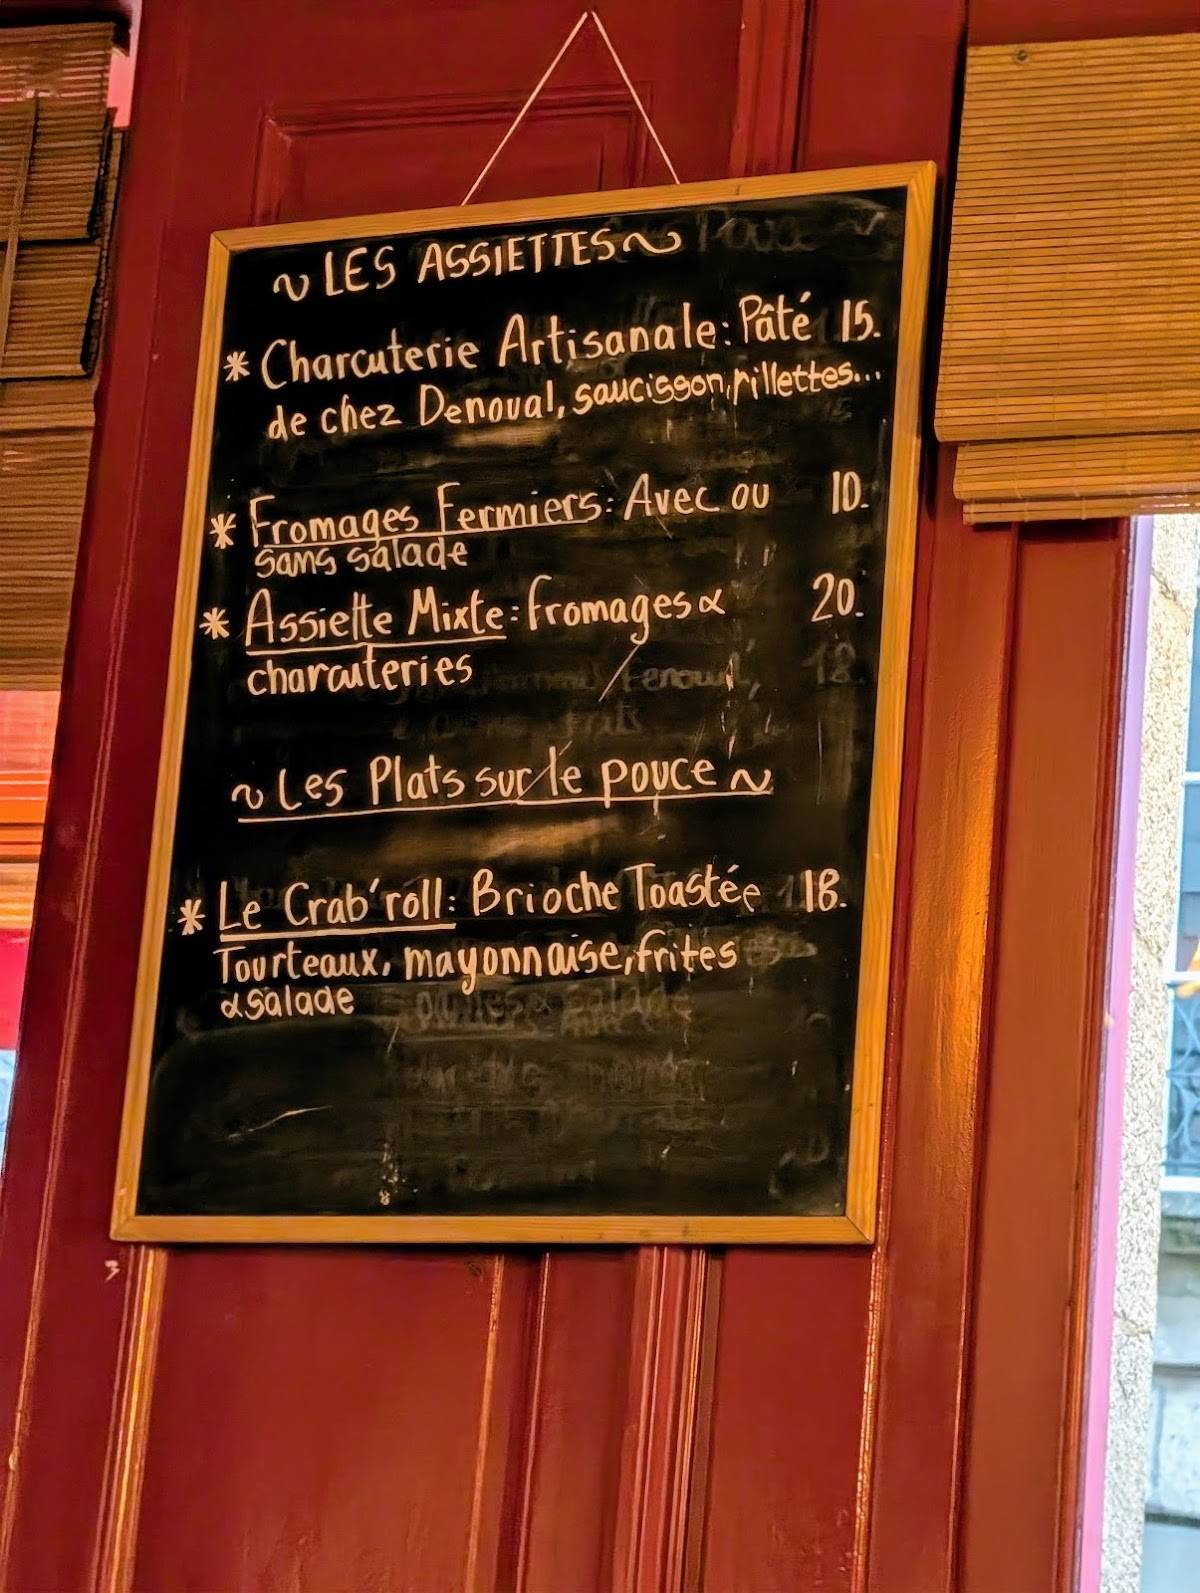 ~ LES ASSIETTES ~
* Charcuterie Artisanale: Pâté 15.
de chez Denoual, saucisson, rillettes...
* Fromages Fermiers: Avec ou 10.
sans salade
* Assiette Mixte: fromages & 20.
charcuteries
~ Les Plats sur le pouce ~
* Le Crab'roll: Brioche Toastée 18.
Tourteaux, mayonnaise, frites
& salade